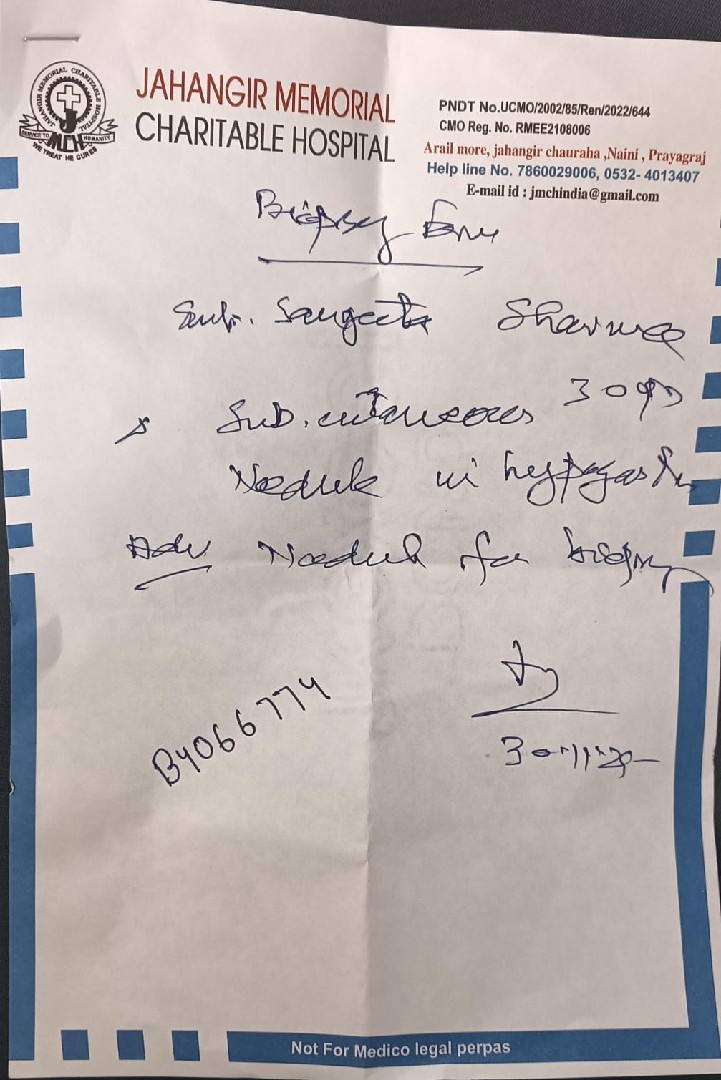 JAHANGIR MEMORIAL
CHARITABLE HOSPITAL
JAHANGIR MEMORIAL CHARITABLE HOSPITAL
SERVICE TO HUMANITY
JMCH
WE TREAT HE CURES
PNDT No.UCMO/2002/85/Ren/2022/644
CMO Reg. No. RMEE2108006
Arail more, jahangir chauraha ,Naini , Prayagraj
Help line No. 7860029006, 0532- 4013407
E-mail id : jmchindia@gmail.com
Biopsy Form
Smt. Sangeeta Sharma
Sub. cutaneous
Nodule in hypogastr
Adv Nodule for biopsy
B4066774
Not For Medico legal perpas